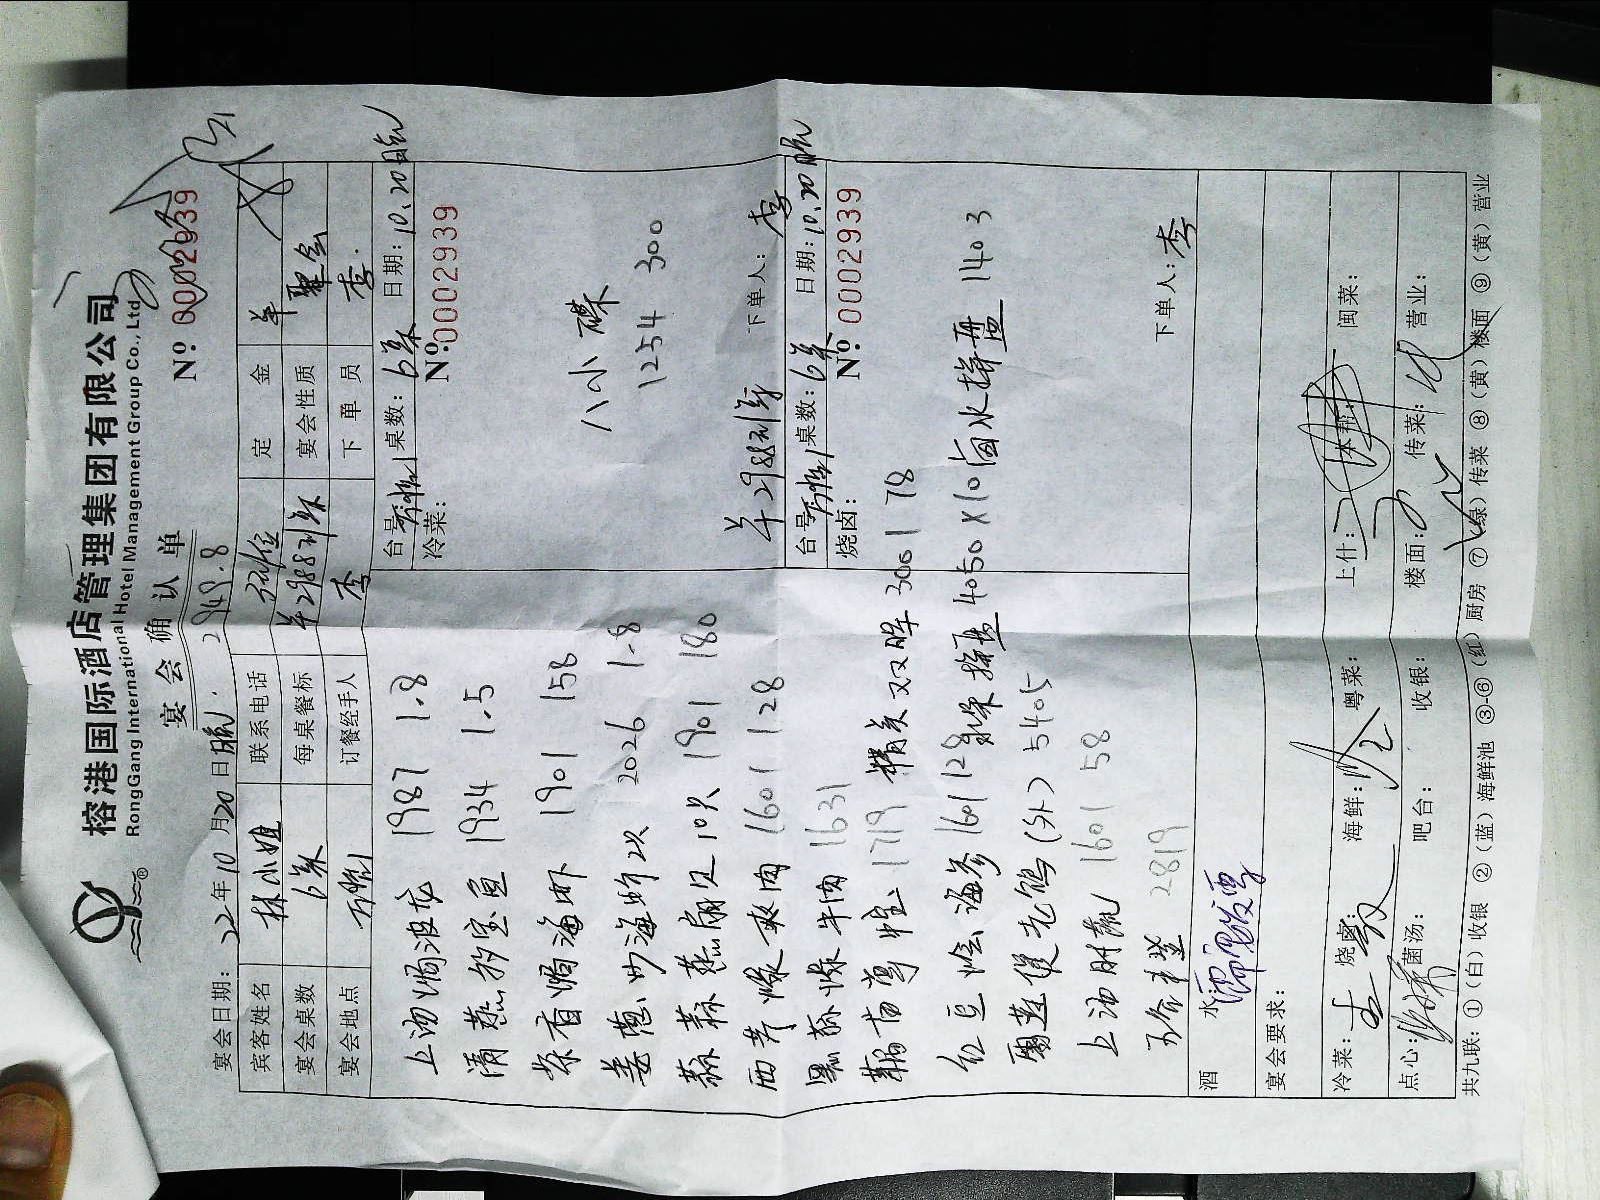 榕港国际酒店管理集团有限公司
RongGang International Hotel Management Group Co., Ltd
®
宴会确认单
№ 0002939
宴会日期: 22年10月20日晚. 2949.8
宾客姓名 林小姐 联系电话 定金
宴会桌数 6桌 每桌餐标 羊2988元/桌 宴会性质 聚会
宴会地点 订餐经手人 李 下单员 李.
上汤焗波龙 1987 1.8
清蒸多宝鱼 1934 1.5
茶香焗海虾 1901 158
姜葱炒海蛎 2026 1.8
蒜蓉蒸扇贝 10只 1901 180
西芹爆爽肉 1601 128
黑蒜爆牛肉 1631
1719
红豆烩海参 1601 128
煲老鸽 5405
上汤时蔬 1601 58
2819
台号: 桌数: 6桌 日期: 10.20晚
冷菜:
№: 0002939
八小碟
1254 300
羊2988元/桌 下单人: 李
台号: 桌数: 6桌 日期: 10.20晚
烧卤:
№: 0002939
精美双晖 3001 78
拼盘 4050 ×10
卤水拼盘 1403
下单人: 李
酒水
宴会要求:
冷菜: 烧卤: 海鲜: 粤菜: 上什: 本帮: 闽菜:
点心: 菌汤: 吧台: 收银: 楼面: 传菜: 营业:
共九联: ①(白)收银 ②(蓝)海鲜池 ③-⑥(红)厨房 ⑦(绿)传菜 ⑧(黄)楼面 ⑨(黄)营业